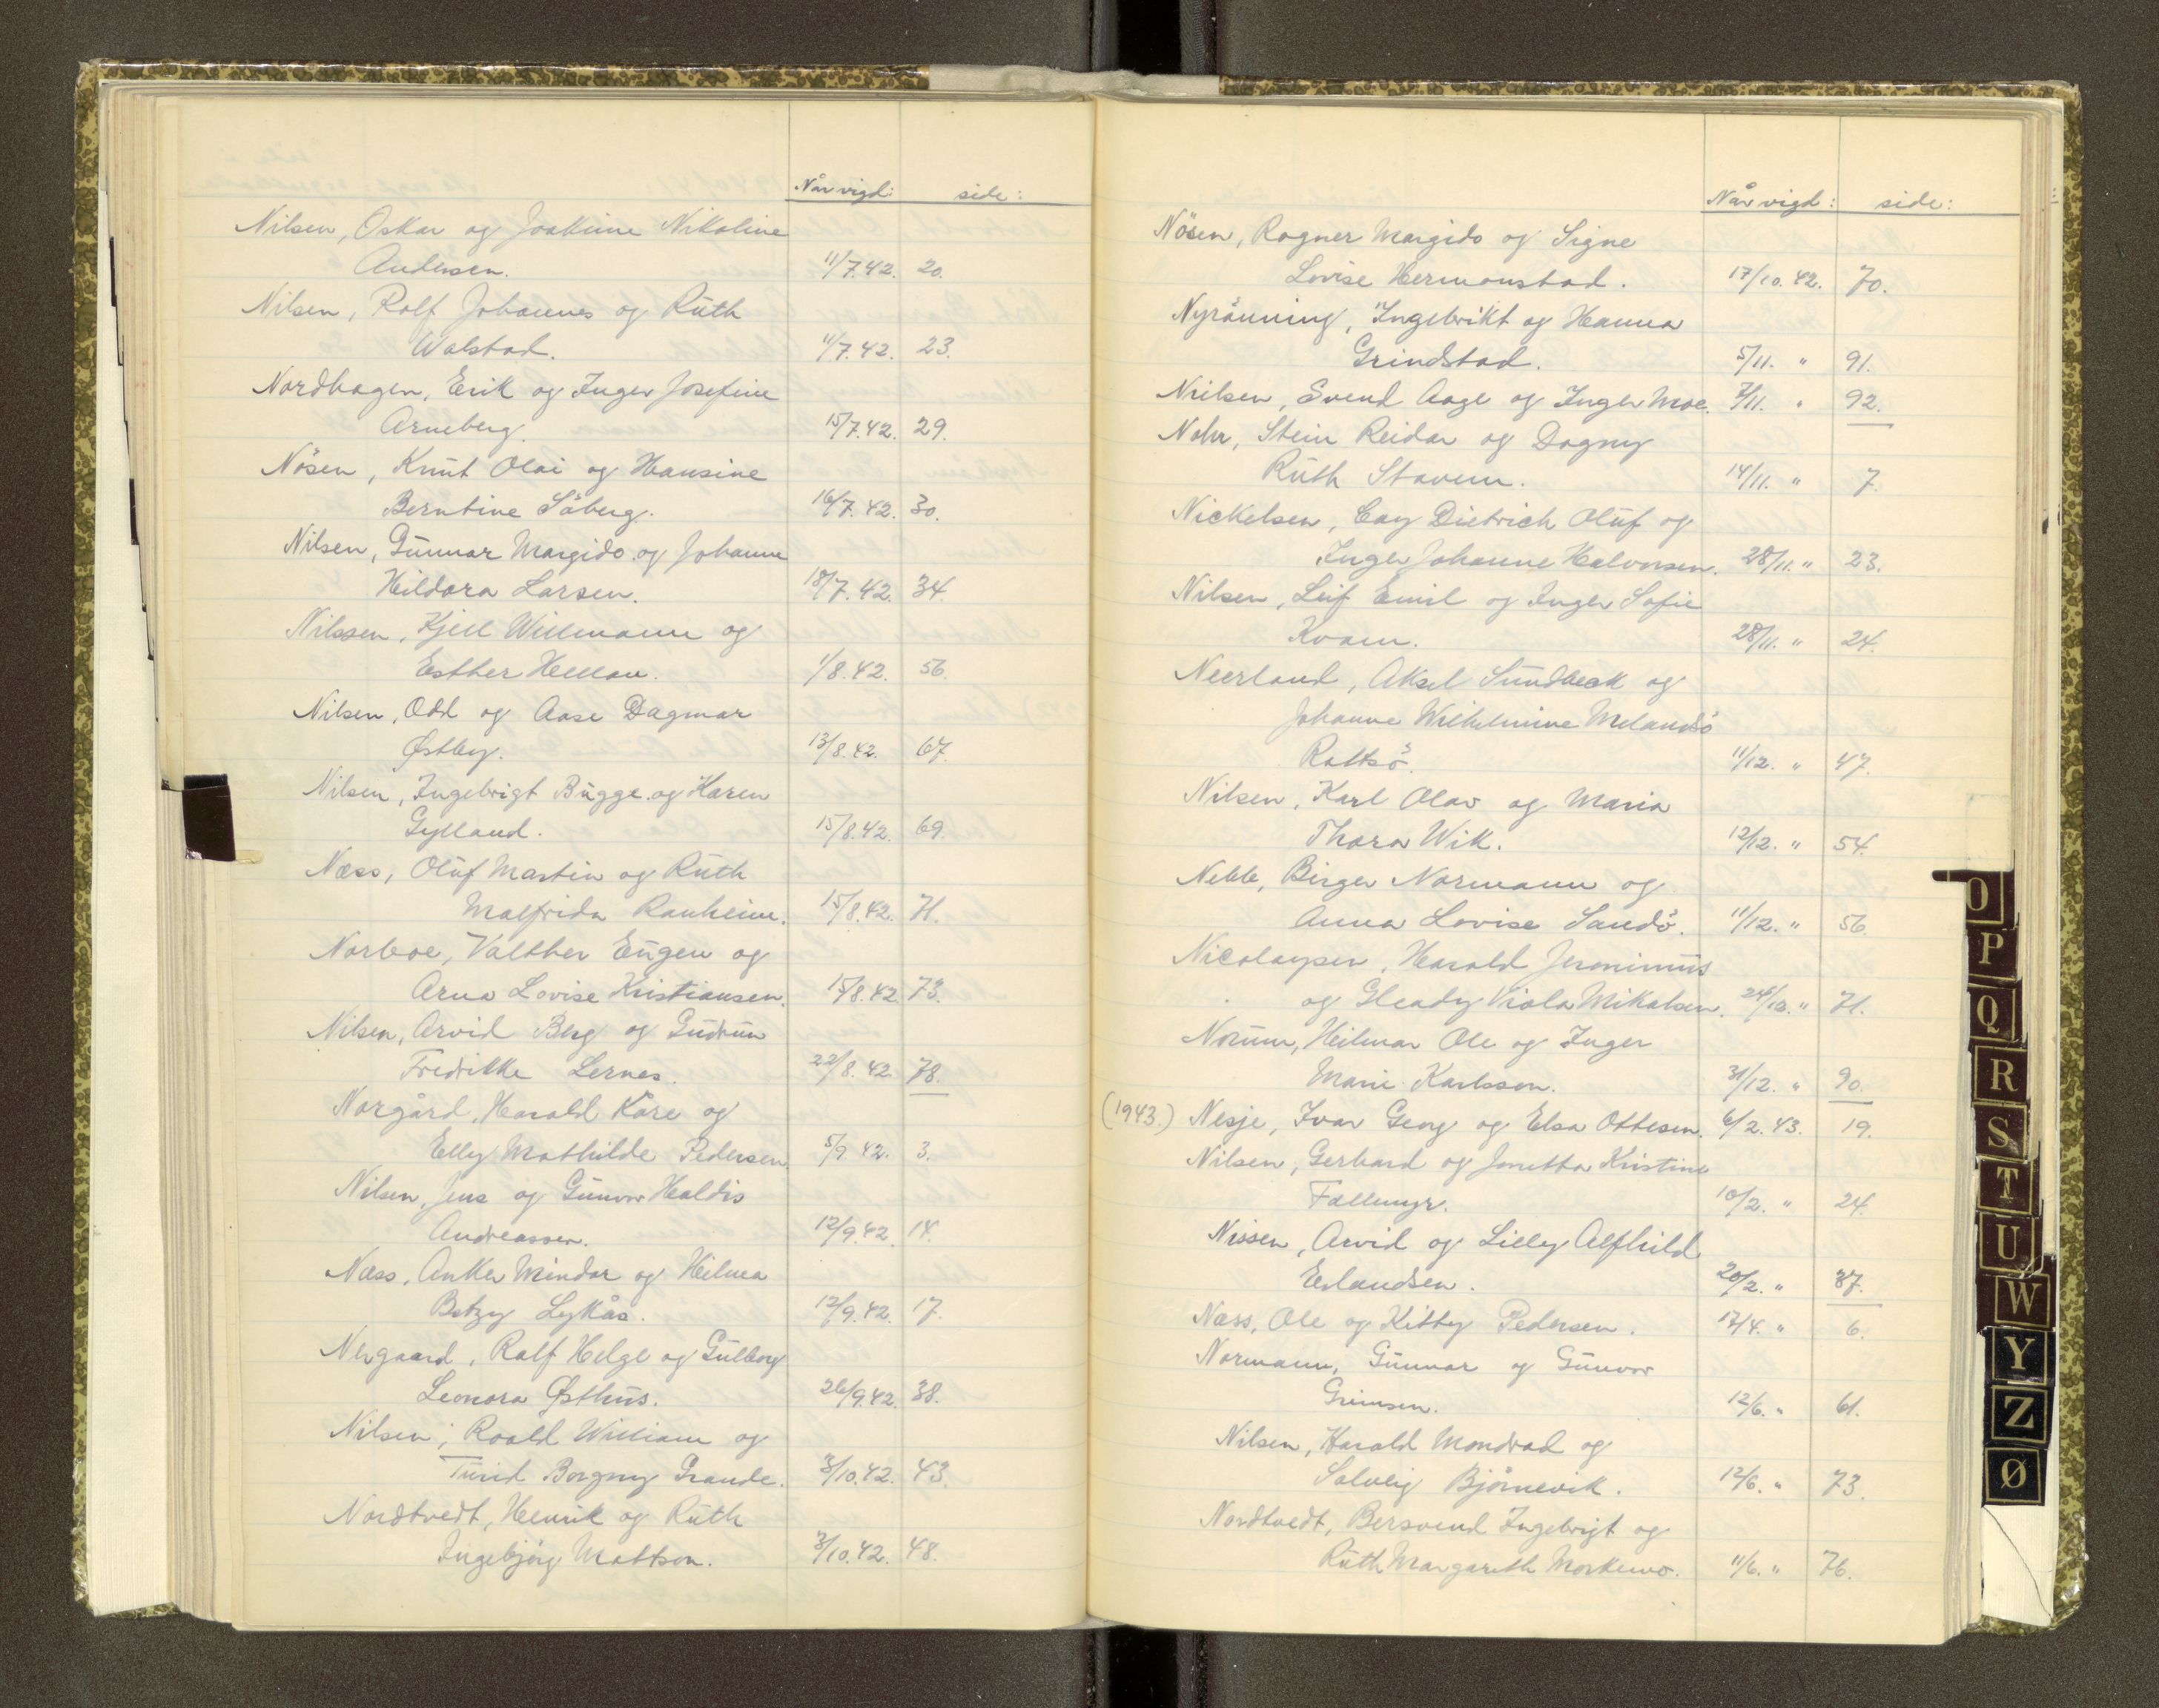 Når vigd: side:
Nilsen, Oskar og Joakime Nikoline
Andersen. 11/7.42. 20.
Nilsen, Rolf Johannes og Ruth
Walstad. 11/7.42. 23.
Nordhagen, Erik og Inger Josefine
Arneberg. 15/7.42. 29.
Nösen, Knut Olai og Hansine
Berntine Söberg. 16/7.42. 30.
Nilsen, Gunnar Margido og Johanne
Hildora Larsen. 18/7.42. 34.
Nilssen, Kjell Willmann og
Esther Hellan. 1/8.42. 56.
Nilsen, Odd og Aase Dagmar
Østby. 13/8.42. 67.
Nilsen, Ingebrigt Bugge og Karen
Gylland. 15/8.42. 69.
Næss, Oluf Martin og Ruth
Malfrida Ranheim. 15/8.42. 71.
Norboe, Valther Eugen og
Arna Lovise Kristiansen. 15/8.42 73.
Nilsen, Arvid Berg og Gudrun
Fredrikke Lernes. 22/8.42. 78.
Norgård, Harald Kåre og
Elly Mathilde Pedersen. 5/9.42. 3.
Nilsen, Jens og Gunvor Haldis
Andreassen. 12/9.42. 14.
Næss, Anker Mindor og Hilma
Betzy Lykås. 12/9.42. 17.
Nergaard, Ralf Helge og Gulborg
Leonora Østhus. 26/9.42. 38.
Nilsen, Roald William og
Turid Borgny Grande. 3/10.42. 43.
Nordtvedt, Henrik og Ruth
Ingebjörg Mattson. 3/10.42. 48.
Når vigd: side:
Nösen, Ragner Margido og Signe
Lovise Hermanstad. 17/10.42. 70.
Nyrönning, Ingebrikt og Hanna
Grindstad. 5/11. " 91.
Nielsen, Svend Aage og Inger Moe. 7/11. " 92.
Nohr, Stein Reidar og Dagny
Ruth Stavem. 14/11. " 7.
Nickelsen, Cay Dietrich Oluf og
Inger Johanne Halvorsen. 28/11. " 23.
Nilsen, Leif Emil og Inger Sofie
Kvam. 28/11. " 24.
Neerland, Aksel Sundbeck og
Johanne Wilhelmine Melandsö
Raltsö. 11/12. " 47.
Nilsen, Karl Olav og Maria
Thora Wik. 12/12. " 54.
Nebb, Birger Normann og
Anna Lovise Sandö. 11/12. " 56.
Nicolaysen, Harald Jeronimus
og Gleady Viola Mikalsen. 24/12. " 71.
Norum, Hilmar Ole og Inger
Marie Karlsson. 31/12. " 90.
(1943.) Nesje, Ivar Georg og Elsa Ottesen. 6/2.43. 19.
Nilsen, Gerhard og Jonetta Kristine
Fallmyr. 10/2. " 24.
Nissen, Arvid og Lilly Alfhild
Erlandsen. 20/2. " 37.
Næss, Ole og Kitty Pedersen. 17/4. " 6.
Normann, Gunnar og Gunvor
Grimsen. 12/6. " 61.
Nilsen, Harald Mondrad og
Solveig Björnevik. 12/6. " 73.
Nordtvedt, Bersvend Ingebrigt og
Ruth Margareth Morkemo. 11/6. " 76.
O
P
Q
R
S
T
U
W
Y
Z
Ø